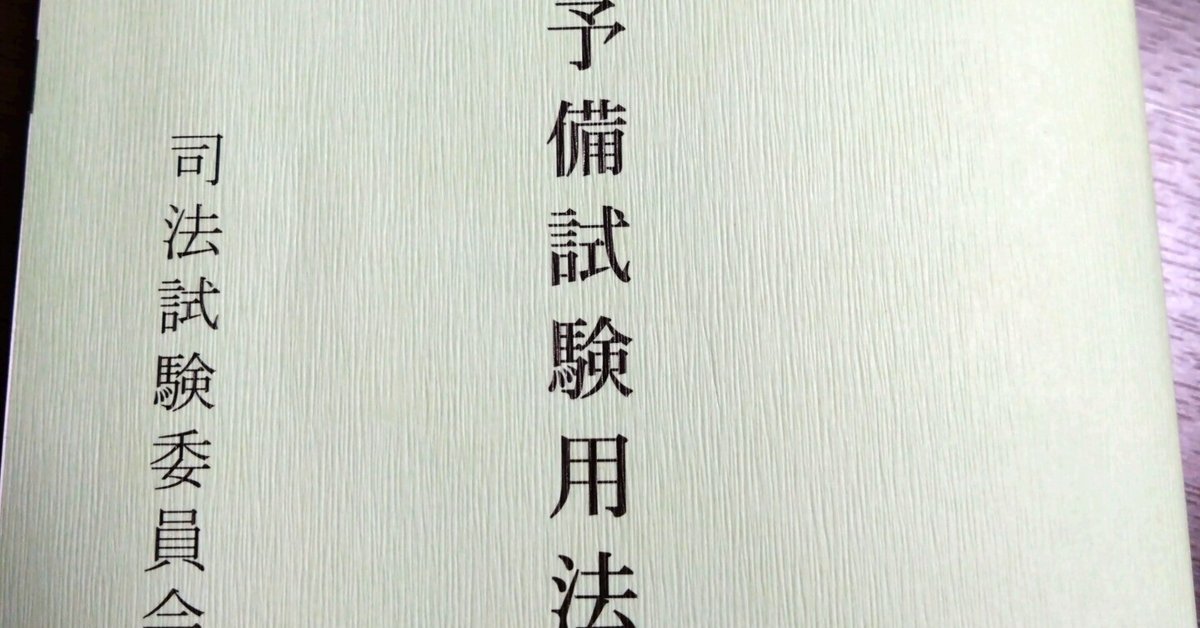 予備試験用法
司法試験委員会